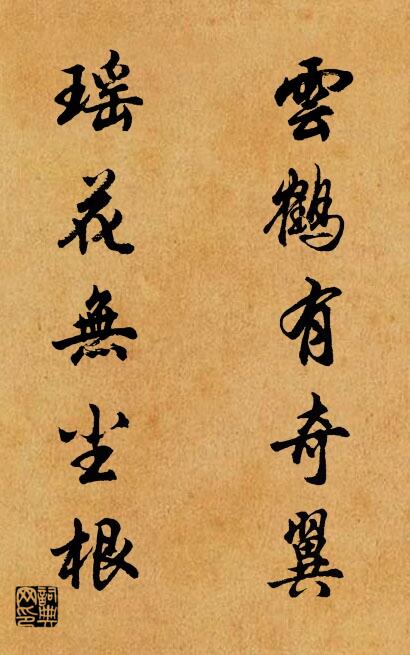 雲鶴有奇翼
瑶花無尘根
詞典
网印